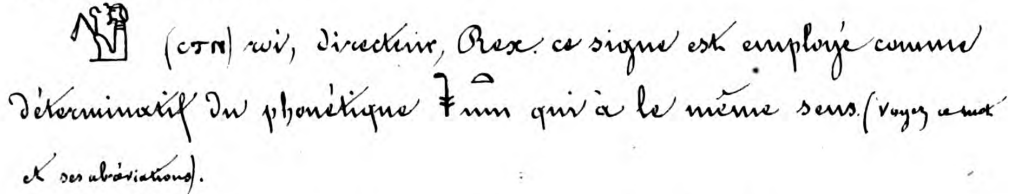 𓀲 (ⲥⲧⲛ) roi, directeur, Rex. ce signe est employé comme
déterminatif du phonétique 𓇓𓏏𓈖 qui à le même sens. (Voyez ce mot
et ses abréviations).